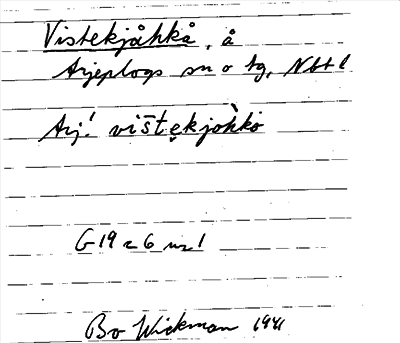 Vistekjåhkå, å
Arjeplogs sn o tg, Nbtl
Arj! vištękjòhkò
G 19
Bo Wickman 1941